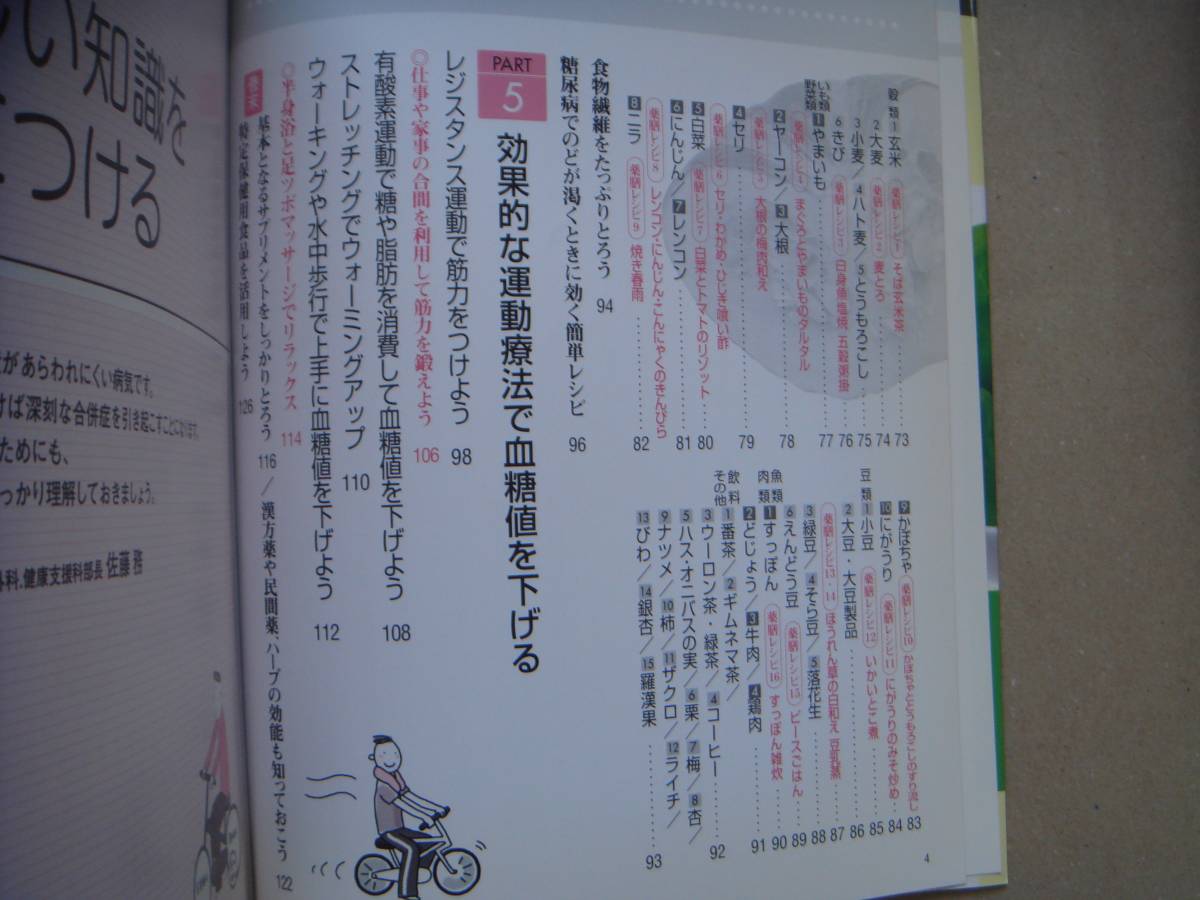 穀類 1 玄米 薬膳レシピ1 そば玄米茶 73
2 大麦 薬膳レシピ2 麦とろ 74
3 小麦/4 ハト麦/5 とうもろこし 75
6 きび 薬膳レシピ3 白身魚塩焼 五穀粥掛 76
いも類 野菜類 1 やまいも 77
薬膳レシピ4 まぐろとやまいものタルタル
2 ヤーコン/3 大根 78
薬膳レシピ5 大根の梅肉和え
4 セリ 79
薬膳レシピ6 セリ・わかめ・ひじき喰い酢
5 白菜 薬膳レシピ7 白菜とトマトのリゾット 80
6 にんじん/7 レンコン 81
薬膳レシピ8 レンコン・にんじん・こんにゃくのきんぴら
8 ニラ 薬膳レシピ9 焼き春雨 82
9 かぼちゃ 薬膳レシピ10 かぼちゃととうもろこしのすり流し 83
10 にがうり 薬膳レシピ11 にがうりのみそ炒め 84
豆類 1 小豆 薬膳レシピ12 いかいとこ煮 85
2 大豆・大豆製品 86
薬膳レシピ13・14 ほうれん草の白和え 豆乳蒸 87
3 緑豆/4 そら豆/5 落花生 88
6 えんどう豆 薬膳レシピ15 ピースごはん 89
魚類 肉類 1 すっぽん 薬膳レシピ16 すっぽん雑炊 90
2 どじょう/3 牛肉/4 鶏肉 91
飲料 その他 1 番茶/2 ギムネマ茶/
3 ウーロン茶・緑茶/4 コーヒー 92
5 ハス・オニバスの実/6 栗/7 梅/8 杏/
9 ナツメ/10 柿/11 ザクロ/12 ライチ/
13 びわ/14 銀杏/15 羅漢果 93
食物繊維をたっぷりとろう 94
糖尿病でのどが渇くときに効く簡単レシピ 96
PART 5 効果的な運動療法で血糖値を下げる
レジスタンス運動で筋力をつけよう 98
◎仕事や家事の合間を利用して筋力を鍛えよう 106
有酸素運動で糖や脂肪を消費して血糖値を下げよう 108
ストレッチングでウォーミングアップ 110
ウォーキングや水中歩行で上手に血糖値を下げよう 112
◎半身浴と足ツボマッサージでリラックス 114
巻末 基本となるサプリメントをしっかりとろう 116/漢方薬や民間薬、ハーブの効能も知っておこう 122
特定保健用食品を活用しよう 126
4
しい知識を
つける
があらわれにくい病気です。
けば深刻な合併症を引き起こすことになります。
ためにも、
っかり理解しておきましょう。
科、健康支援科部長 佐藤務